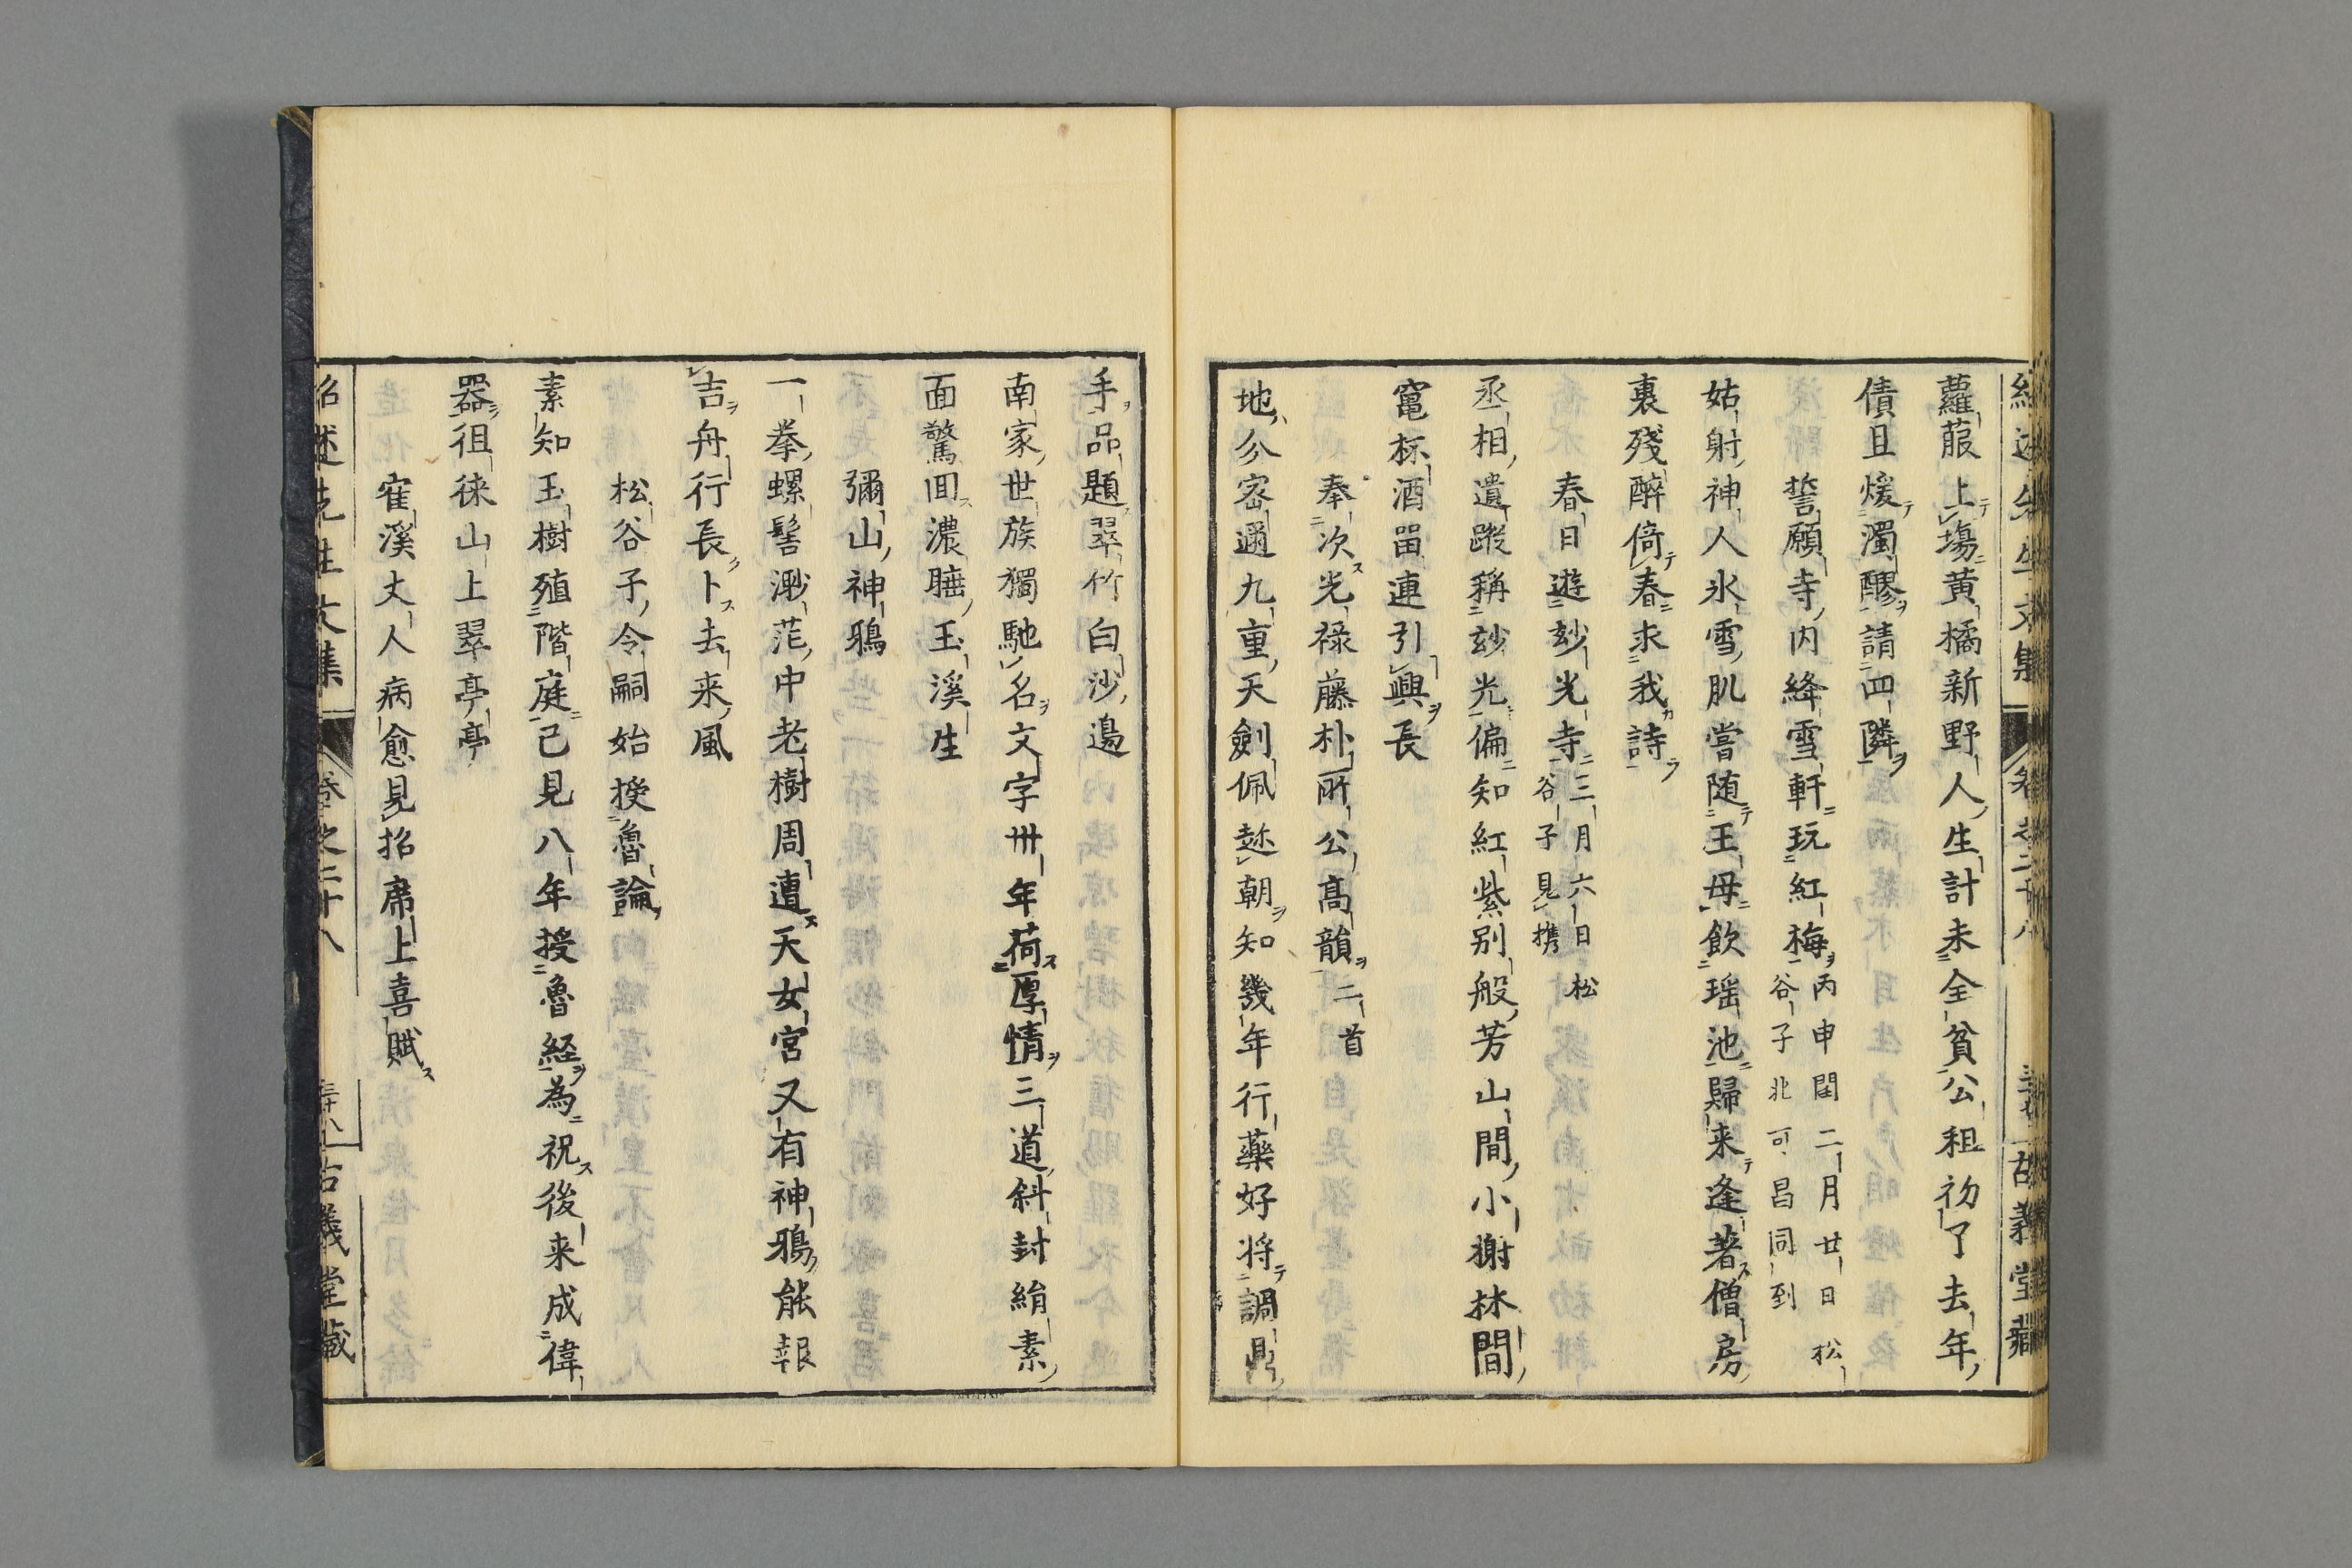 紹述先生文集 卷之二十八 古義堂藏
蘿菔上塲黄橘新野人生計未全貧公租初了去年
債且煖濁醪請四隣
誓願寺内絳雪軒玩紅梅丙申閏二月廿日松
谷子北可昌同到
姑射神人氷雪肌嘗随王母飲瑶池歸来逢著僧房
裏殘醉倚春求我詩
春日遊玅光寺三月六日松
谷子見携
丞相遺蹤稱玅光偏知紅紫别般芳山間小榭林間
竈柝酒畱連引興長
奉次光禄藤朴所公髙韻二首
地分宻邇九重天劍佩趂朝知幾年行藥好将調鼎
手品題翠竹白沙邉
南家世族獨馳名文字卅年荷厚情三道斜封絹素
面驚囬濃睡玉溪生
彌山神鴉
一拳螺髻渺茫中老樹周遭天女宮又有神鴉能報
吉舟行長卜去来風
松谷子令嗣始授魯論
素知玉樹殖階庭已見八年授魯経為祝後来成偉
器徂徠山上翠亭亭
寉溪丈人病愈見招席上喜賦
紹述先生文集 卷之二十八 三十八 古義堂藏